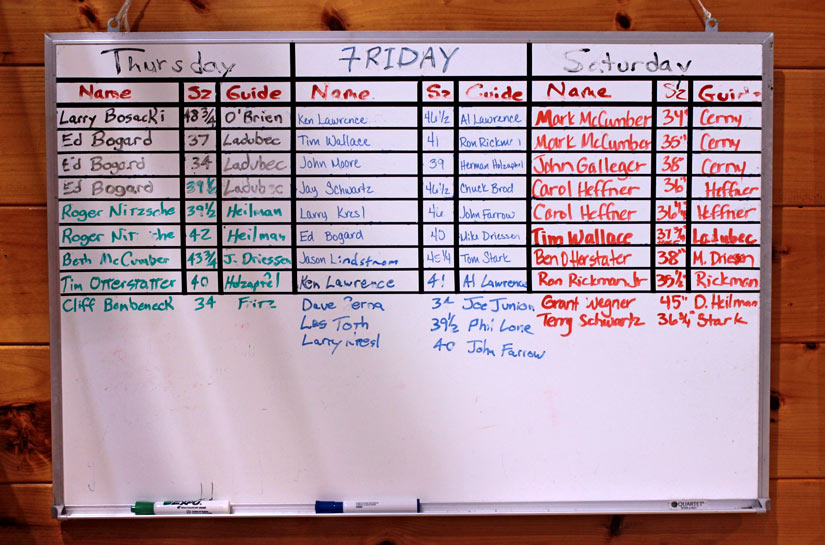 Thursday 7RIDAY Saturday
Name Sz Guide Name Sz Guide Name Sz Guide
Larry Bosacki 48 3/4 O'Brien Ken Lawrence 46 1/2 Al Lawrence Mark McCumber 34" Cerny
Ed Bogard 37 Ladubec Tim Wallace 41 Ron Rickman Mark McCumber 35" Cerny
Ed Bogard 34 Ladubec John Moore 39 Herman Holzapfel John Galleger 38" Cerny
Ed Bogard 39 Ladubec Jay Schwartz 46 1/2 Chuck Brod Carol Heffner 36" Heffner
Roger Nitzsche 39 1/2 Heilman Larry Kresl 46 John Farrow Carol Heffner Heffner
Roger 42 Heilman Ed Bogard 40 Mike Driessen Tim Wallace Ladubec
Beth McCumber 43 3/4 J. Driessen Jason Lindstrom 45 1/4 Tom Stark Ben D. Herstater 38" M. Driesen
Tim Otterstatter 40 Holzapfel Ken Lawrence 41 Al Lawrence Ron Rickman Jr 35 1/2" Rickman
Cliff Bombeneck 34 Fritz Dave 34 Joe Junion Grant Wegner 45" D. Heilman
Les Toth 39 1/2 Phil Lore Terry Schwartz 36 3/4" Stark
Larry Kresl 40 John Farrow
EXPO
QUARTET